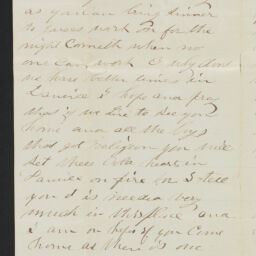 as you can bring dinner
to guess work on for the
night Cometh when no
one can work O why dont
we have better times in
I hope and pray
that if we live to see you
home and all the boys
that got religion you will
set these Cold hearts in
on fire for I tell
you it is needed very
much in this place and
i am in hops if you Come
home as there is one